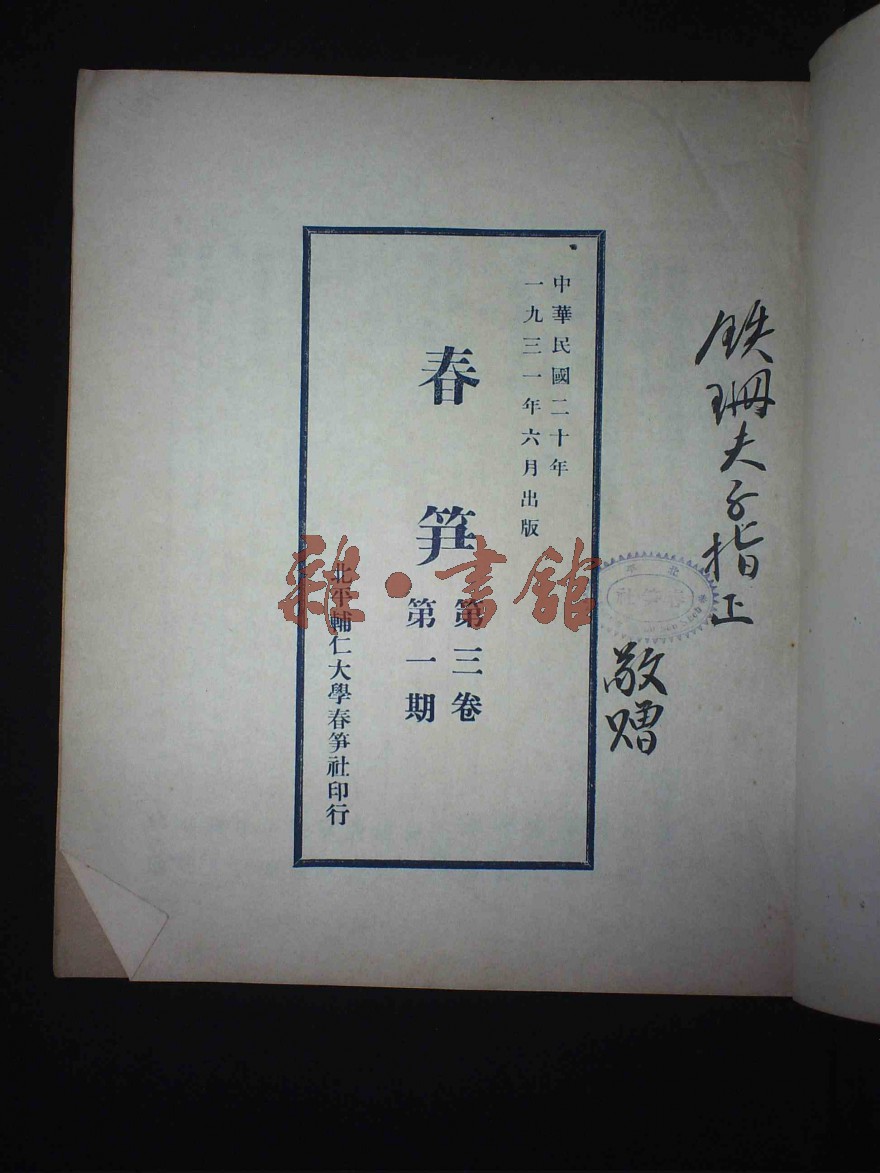 中華民國二十年
一九三一年六月出版
春笋
第三卷
第一期
北平輔仁大學春笋社印行
鉄珊夫子指正
敬赠
北平
春笋社
雜·書館